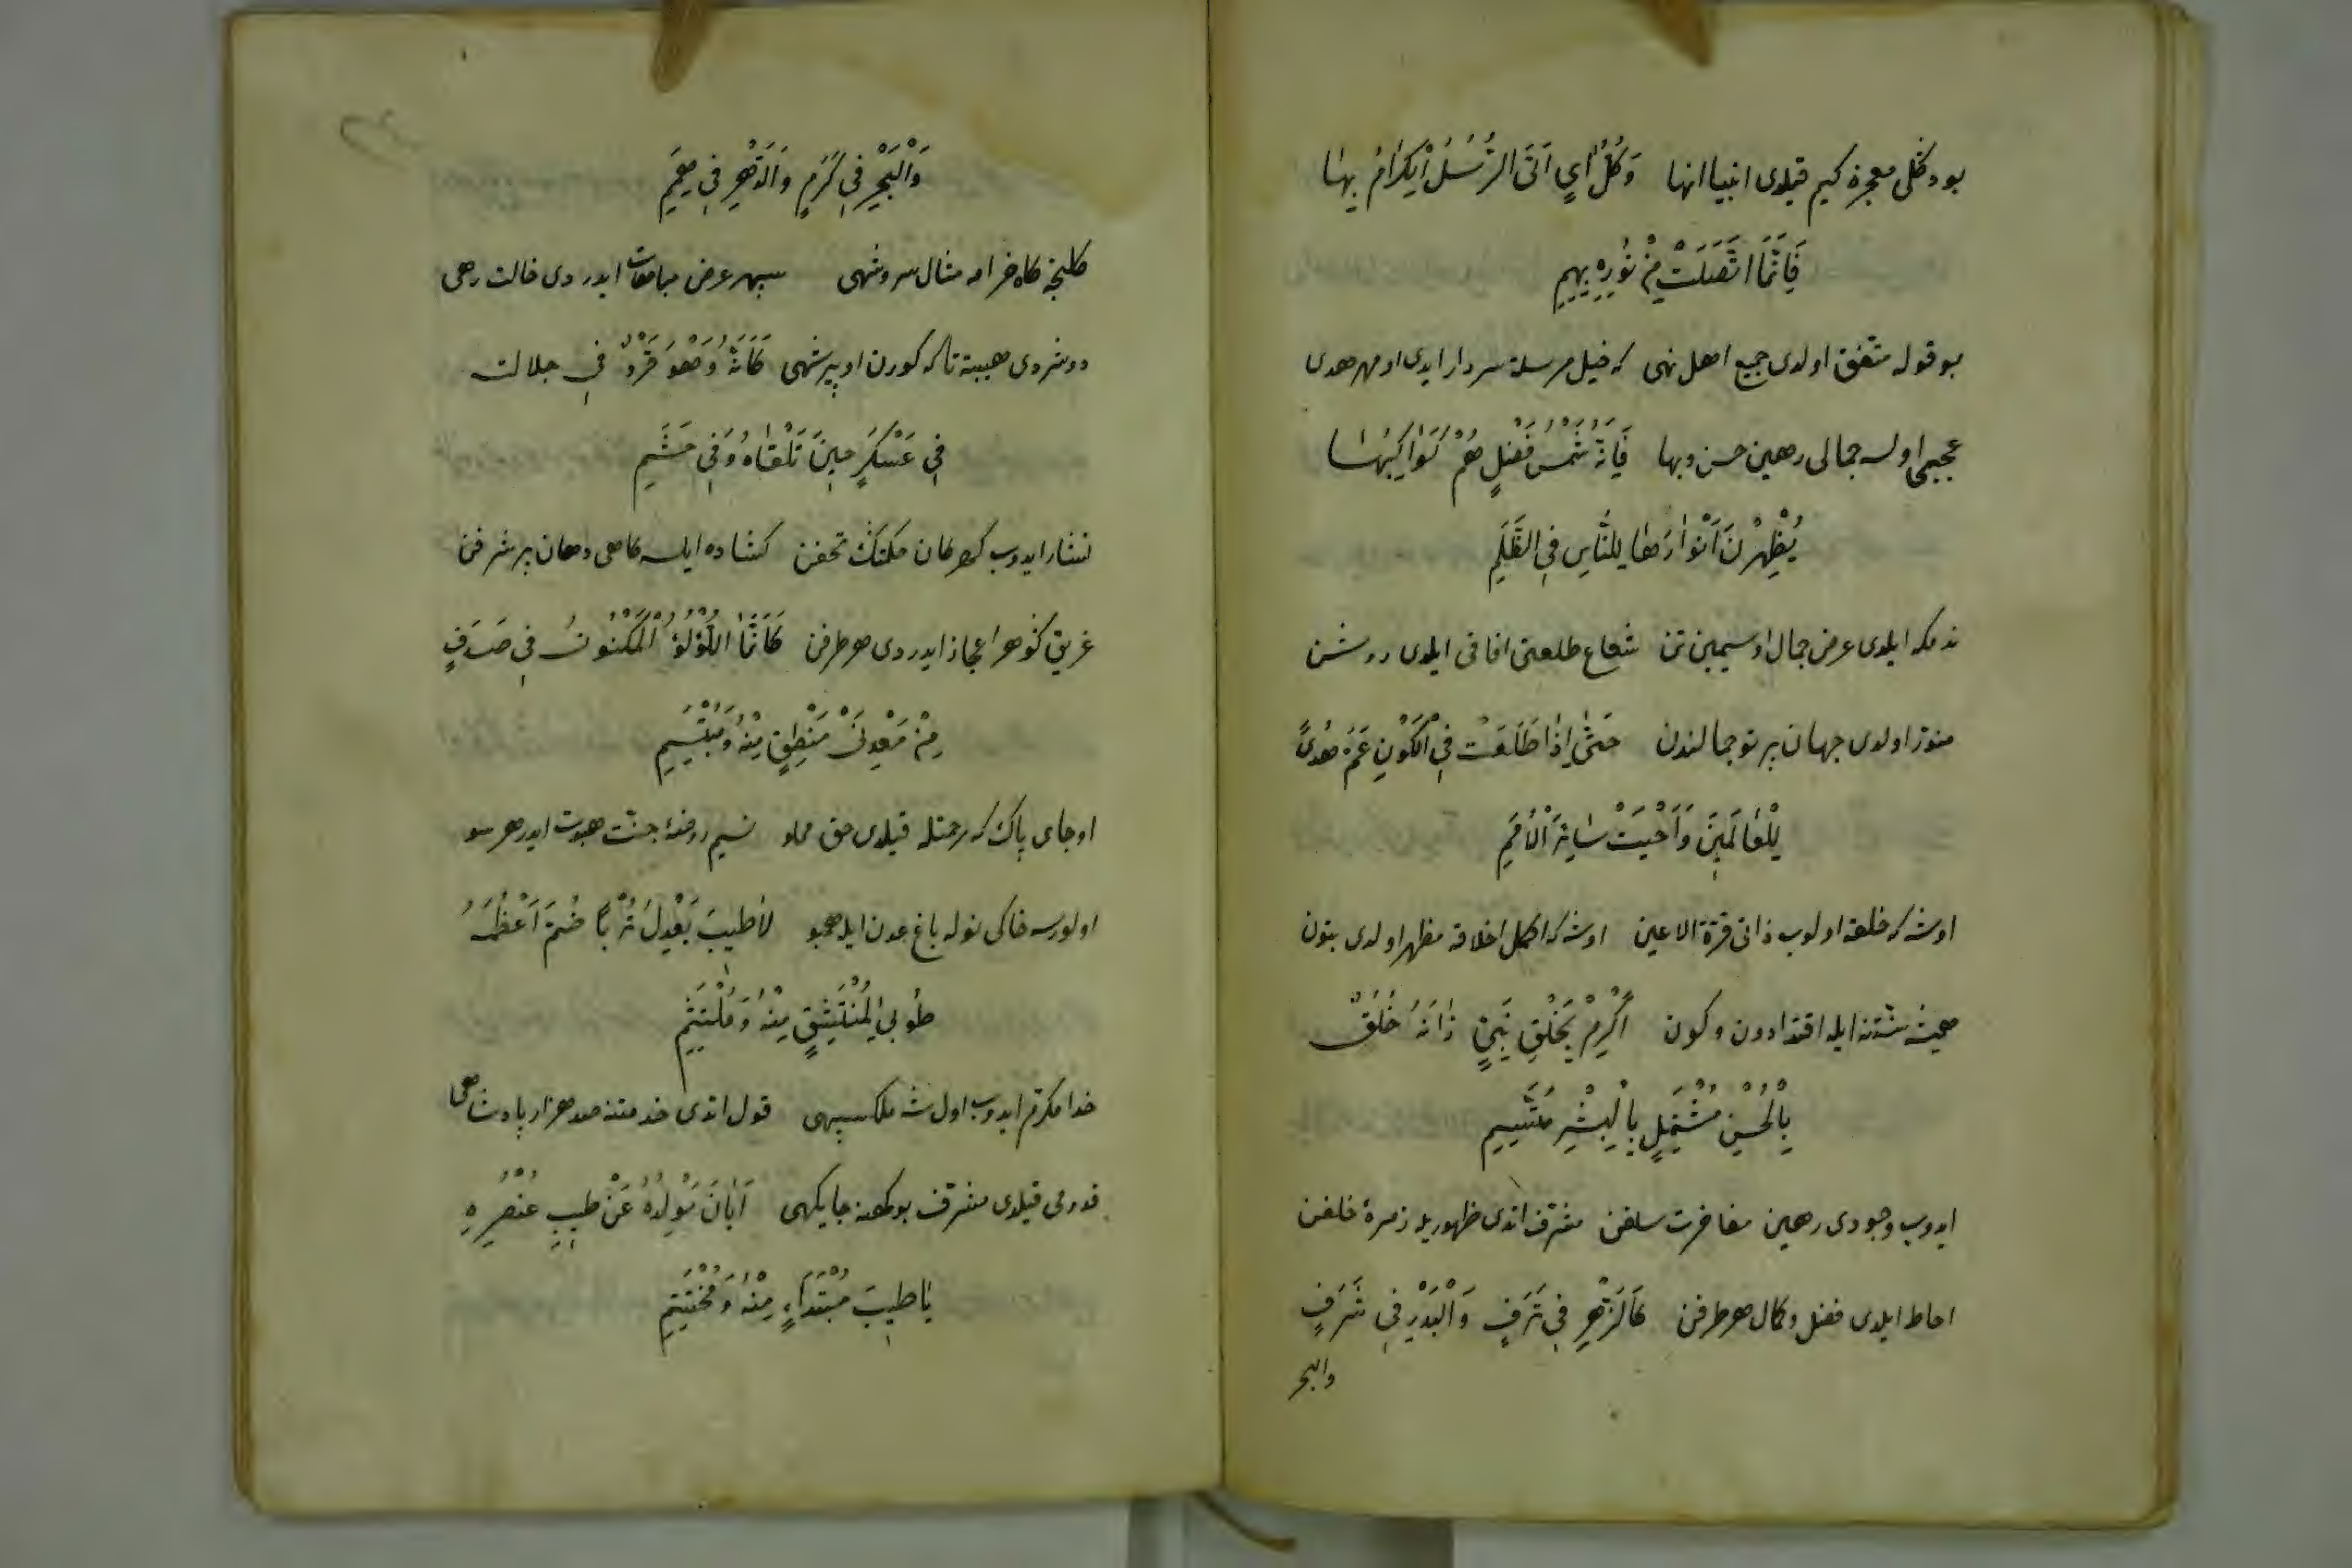 بو دکلی معجزه کیم قیلدی انبیا انها وَكُلُّ اٰيٍ اَتَى الرُّسُلُ الْكِرَامُ بِهَا
فَاِنَّمَا اتَّصَلَتْ مِنْ نُورِهِ بِهِمِ
بو قوله متّفق اولدی جمیع اهل نهی که خیل مرسله سردار ایدی او مهر هدی
عجبمی اولسه جمالی رهین حسن و بها فَاِنَّهُ شَمْسُ فَضْلٍ هُمْ كَوَاكِبُهَا
يُظْهِرْنَ اَنْوَارَهَا لِلنَّاسِ فِي الظُّلَمِ
نه مکه ایلدی عرض جمال او سیمین تن شعاع طلعتی افاقی ایلدی روشن
منوّر اولدی جهان پرتو جمالندن حَتّٰى اِذَا طَلَعَتْ فِي الْكَوْنِ عَمَّ هُدًى
لِلْعَالَمِينَ وَاَحْيَتْ سَائِرَ الْاُمَمِ
اوشه که خلقه اولوب ذاتی قرّة الاعین اوشه که اکمل اخلاقه مظهر اولدی بتون
ایله اقتدا دون و کون اَكْرِمْ بِخَلْقِ نَبِيٍّ زَانَهُ خُلُقٌ
بِالْحُسْنِ مُشْتَمِلٍ بِالْبِشْرِ مُتَّسِمِ
ایدوب وجودی رهین مفاخرت سلفن مشرّف اتدی ظهوریله زمرۀ خلفن
احاطه ایلدی فضل و کمال هر طرفن كَالزَّهْرِ فِي تَرَفٍ وَالْبَدْرِ فِي شَرَفٍ
والبحر
وَالْبَحْرِ فِي كَرَمٍ وَالدَّهْرِ فِي هِمَمِ
کلنجه کاه خرامه مثال سرو شهی سپهر عرض مباهات ایدردی خالت رهی
دوشردی هیبته تا که کورن او پیر شهی كَاَنَّهُ وَهْوَ فَرْدٌ فِي جلالت
فِي عَسْكَرٍ حِينَ تَلْقَاهُ وَفِي حَشَمِ
نثار ایدوب کهر کان حکمتک تحفن کشاده ایلسه کاهی دهان پر شرفن
غریق کوهر اعجاز ایدردی هر طرفن كَاَنَّمَا اللُّؤْلُؤُ الْمَكْنُونُ فِي صَدَفٍ
مِنْ مَعْدِنَيْ مَنْطِقٍ مِنْهُ وَمُبْتَسِمِ
او جای پاک که رحمتله قیلدی حق مملو نسیم روضۀ جنّت هبوب ایدر هر سو
اولورسه خاکی نوله باغ عدن ایله همبو لَا طِيبَ يَعْدِلُ تُرْبًا ضَمَّ اَعْظُمَهُ
طُوبَى لِمُنْتَشِقٍ مِنْهُ وَمُلْتَثِمِ
خدا مکرّم ایدوب اول شه ملک سپهی قول اتدی خدمتنه صد هزار پادشاهی
قدومی قیلدی مشرّف بو کهنه جایکهی اَبَانَ مَوْلِدُهُ عَنْ طِيبِ عُنْصُرِهِ
يَا طِيبَ مُبْتَدَاءٍ مِنْهُ وَمُخْتَتَمِ